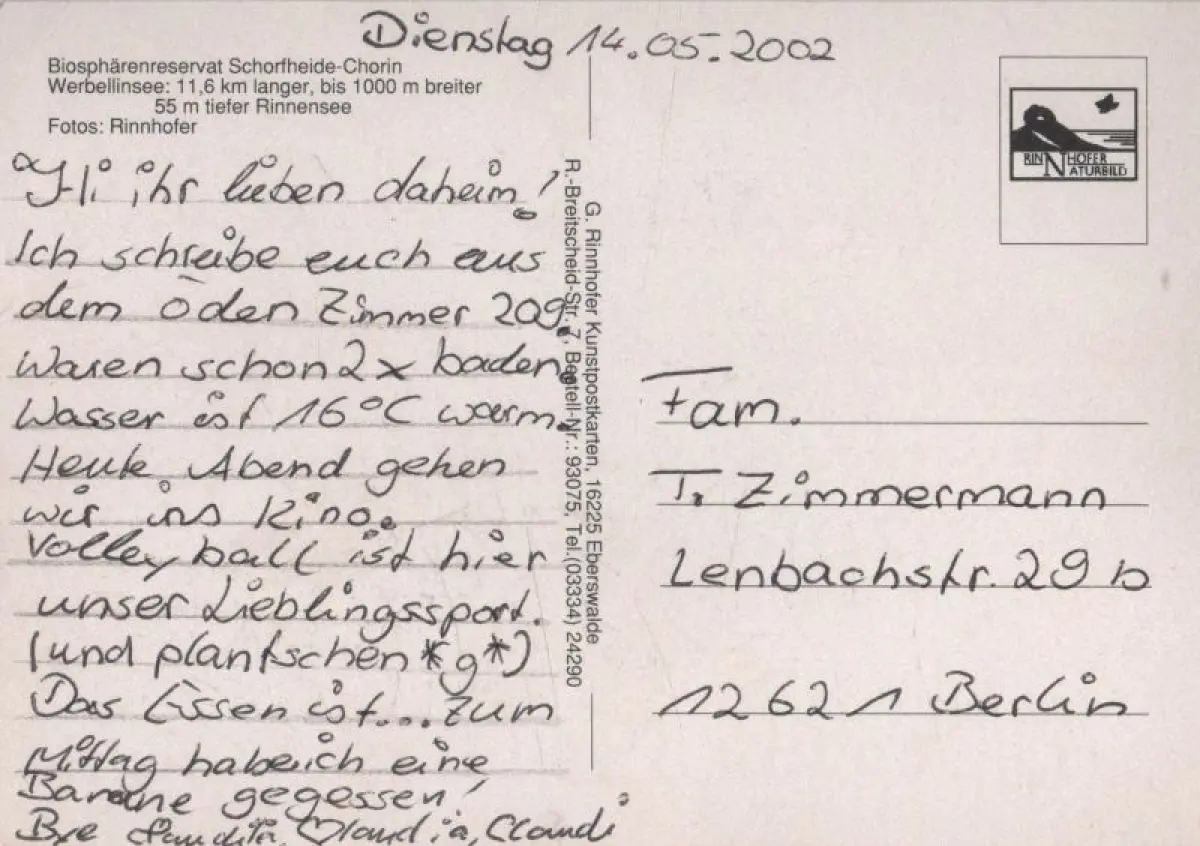 Dienstag 14.05.2002
Biosphärenreservat Schorfheide-Chorin
Werbellinsee: 11,6 km langer, bis 1000 m breiter
55 m tiefer Rinnensee
Fotos: Rinnhofer
Hi ihr lieben daheim!
Ich schreibe euch aus
dem öden Zimmer 209.
Waren schon 2x baden.
Wasser ist 16°C warm.
Heute Abend gehen
wir ins Kino.
Volleyball ist hier
unser Lieblingssport.
(und plantschen *g*)
Das Essen ist... zum
Mittag habe ich eine
Banane gegessen!
Bye Claudia, Claudi
G. Rinnhofer Kunstpostkarten, 16225 Eberswalde
R.-Breitscheid-Str. 7, Bestell-Nr.: 93075, Tel.(03334) 24290
RINNHOFER
NATURBILD
Fam.
T. Zimmermann
Lenbachstr. 29 b
12621 Berlin